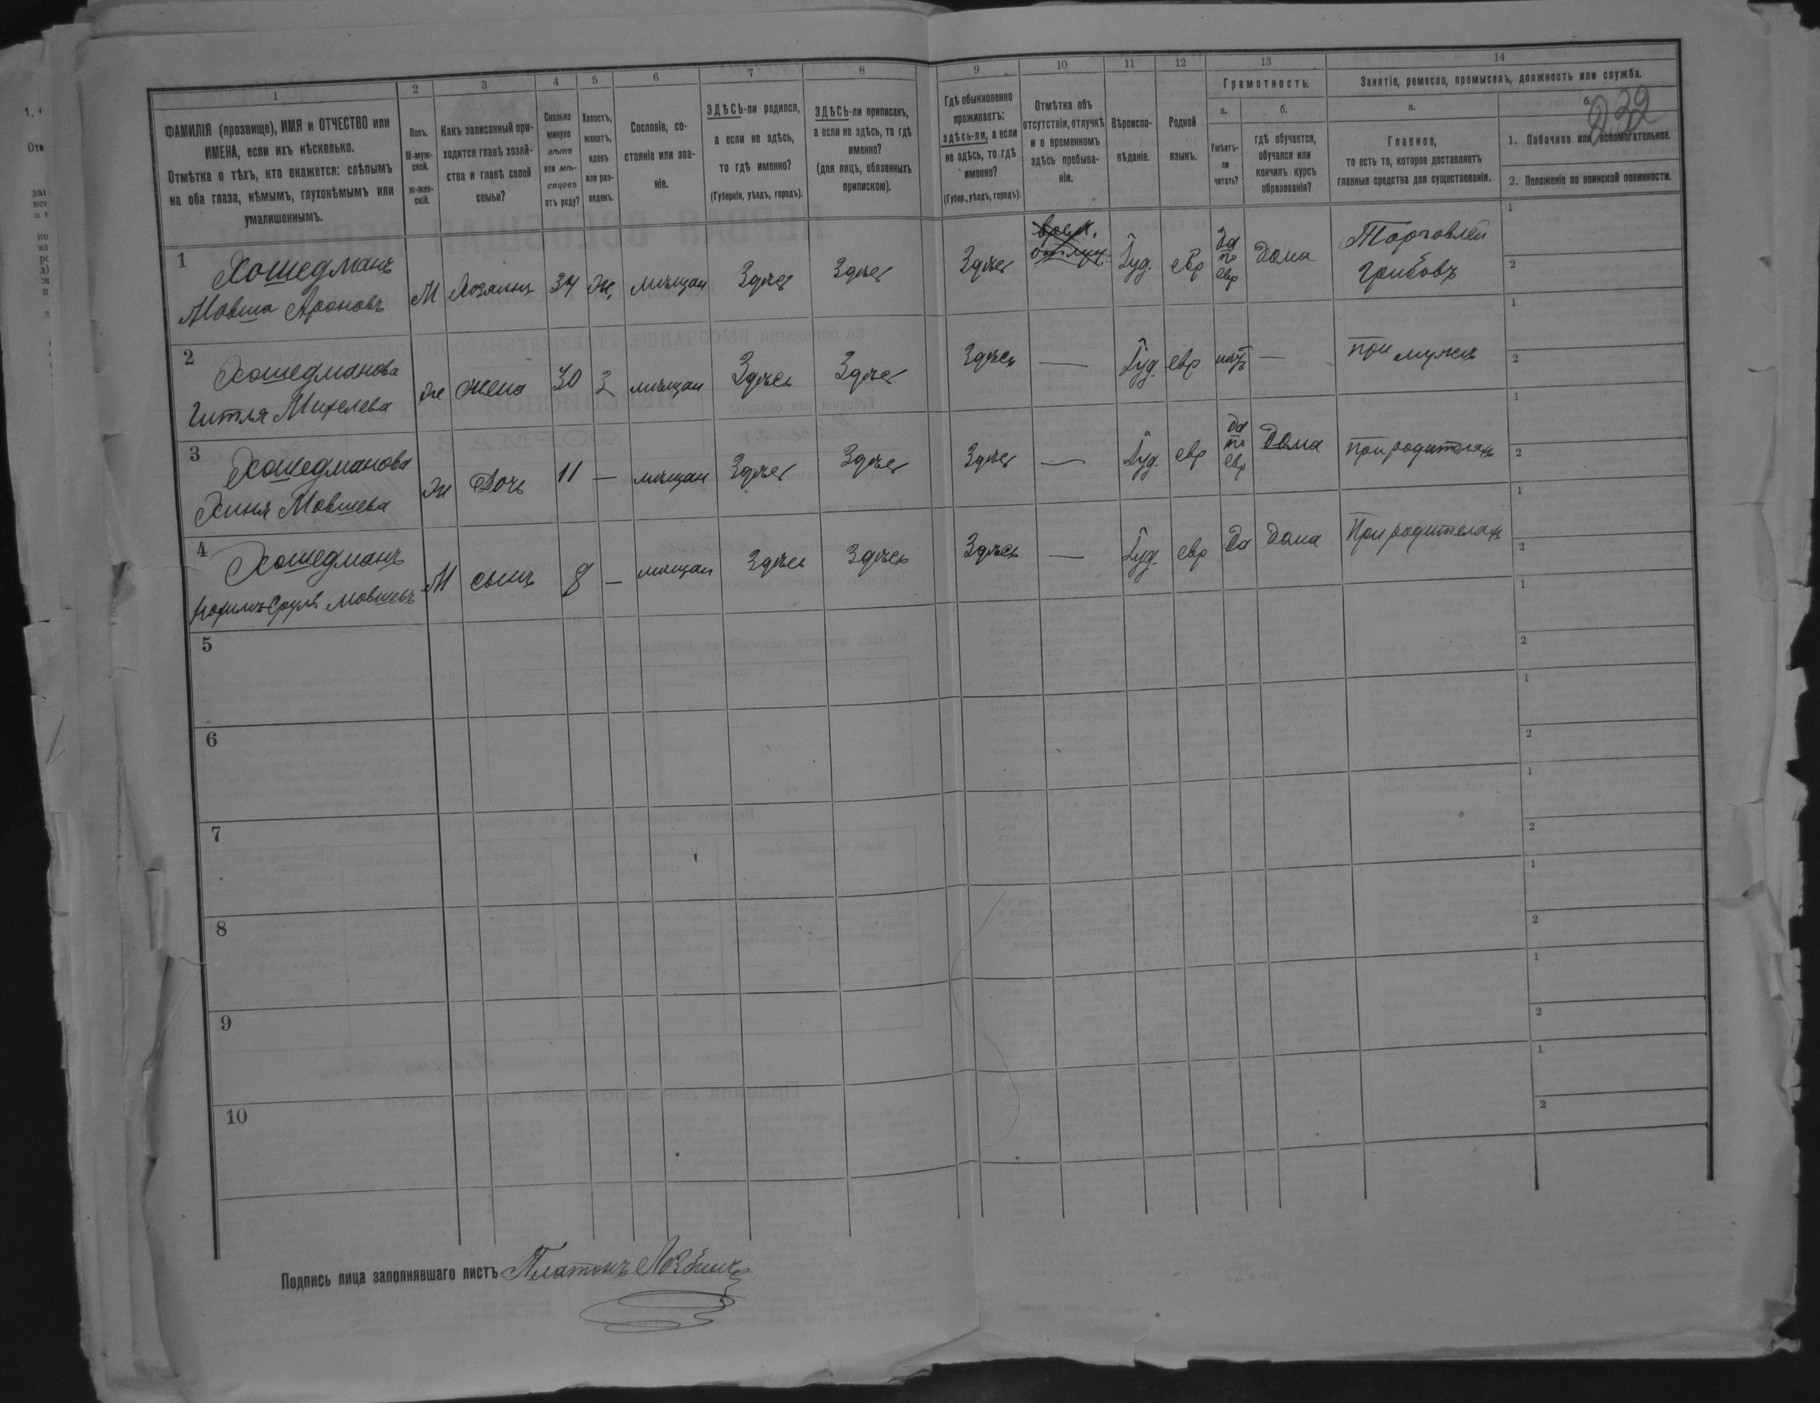 232
1
2
3
4
5
6
7
8
9
10
11
12
13
14
ФАМИЛІЯ (прозвище), ИМЯ и ОТЧЕСТВО или
ИМЕНА, если ихъ нѣсколько.
Отмѣтка о тѣхъ, кто окажется: слѣпымъ
на оба глаза, нѣмымъ, глухонѣмымъ или
умалишеннымъ.
Полъ.
М-муж-
ской.
Ж-жен-
скій.
Какъ записанный при-
ходится главѣ хозяй-
ства и главѣ своей
семьи?
Сколько
минуло
лѣтъ
или мѣ-
сяцевъ
отъ роду?
Холостъ,
женатъ,
вдовъ
или раз-
веденъ.
Сословіе, со-
стояніе или зва-
ніе.
ЗДѢСЬ-ли родился,
а если не здѣсь,
то гдѣ именно?
(Губернія, уѣздъ, городъ).
ЗДѢСЬ-ли приписанъ,
а если не здѣсь, то гдѣ
именно?
(для лицъ, обязанныхъ
припискою).
Гдѣ обыкновенно
проживаетъ:
здѣсь-ли, а если
не здѣсь, то гдѣ
именно?
(Губер., уѣздъ, городъ).
Отмѣтка объ
отсутствіи, отлучкѣ
и о временномъ
здѣсь пребыва-
ніи.
Вѣроиспо-
вѣданіе.
Родной
языкъ.
Грамотность.
а.
Умѣетъ-
ли
читать?
б.
гдѣ обучается,
обучался или
кончилъ курсъ
образованія?
Занятіе, ремесло, промыселъ, должность или служба.
а.
Главное,
то есть то, которое доставляетъ
главныя средства для существованія.
б.
1. Побочное или вспомогательное.
2. Положеніе по воинской повинности.
1
Хошедманъ
Мовша Ароновъ
М
Хозяинъ
34
ж.
мѣщан
Здѣсь
Здѣсь
Здѣсь
врем.
отлуч.
Іуд.
евр
Да
по
евр
Дома
Торговлей
грибовъ
1
2
2
Хошедманова
Гитля Михелева
ж
жена
30
З
мѣщан
Здѣсь
Здѣсь
Здѣсь
—
Іуд.
евр
нѣтъ
—
при мужѣ
1
2
3
Хошедманова
Хиня Мовшева
ж
Дочь
11
—
мѣщан
Здѣсь
Здѣсь
Здѣсь
—
Іуд.
евр
Да
по
евр
Дома
при родителяхъ
1
2
4
Хошедманъ
Сруль Мовшевъ
М
сынъ
8
—
мѣщан
Здѣсь
Здѣсь
Здѣсь
—
Іуд.
евр
Да
Дома
При родителяхъ
1
2
5
1
2
6
1
2
7
1
2
8
1
2
9
1
2
10
1
2
Подпись лица заполнявшаго листъ Платонъ